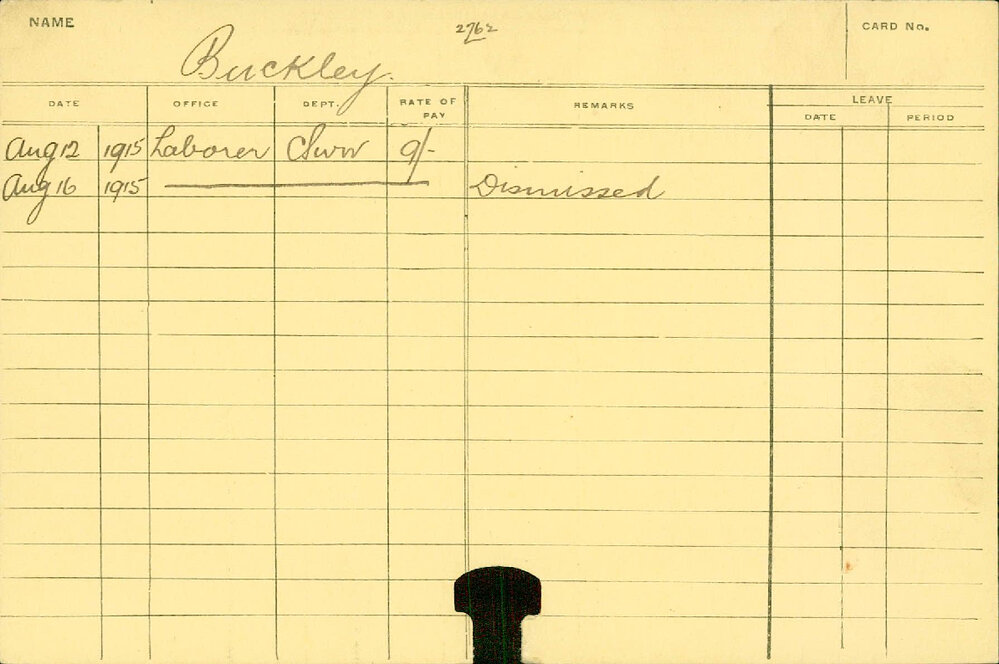 NAME 2762 CARD No.
Buckley.
DATE OFFICE DEPT. RATE OF PAY REMARKS LEAVE
DATE PERIOD
Aug 12 1915 Laborer 9/-
Aug 16 1915 Dismissed